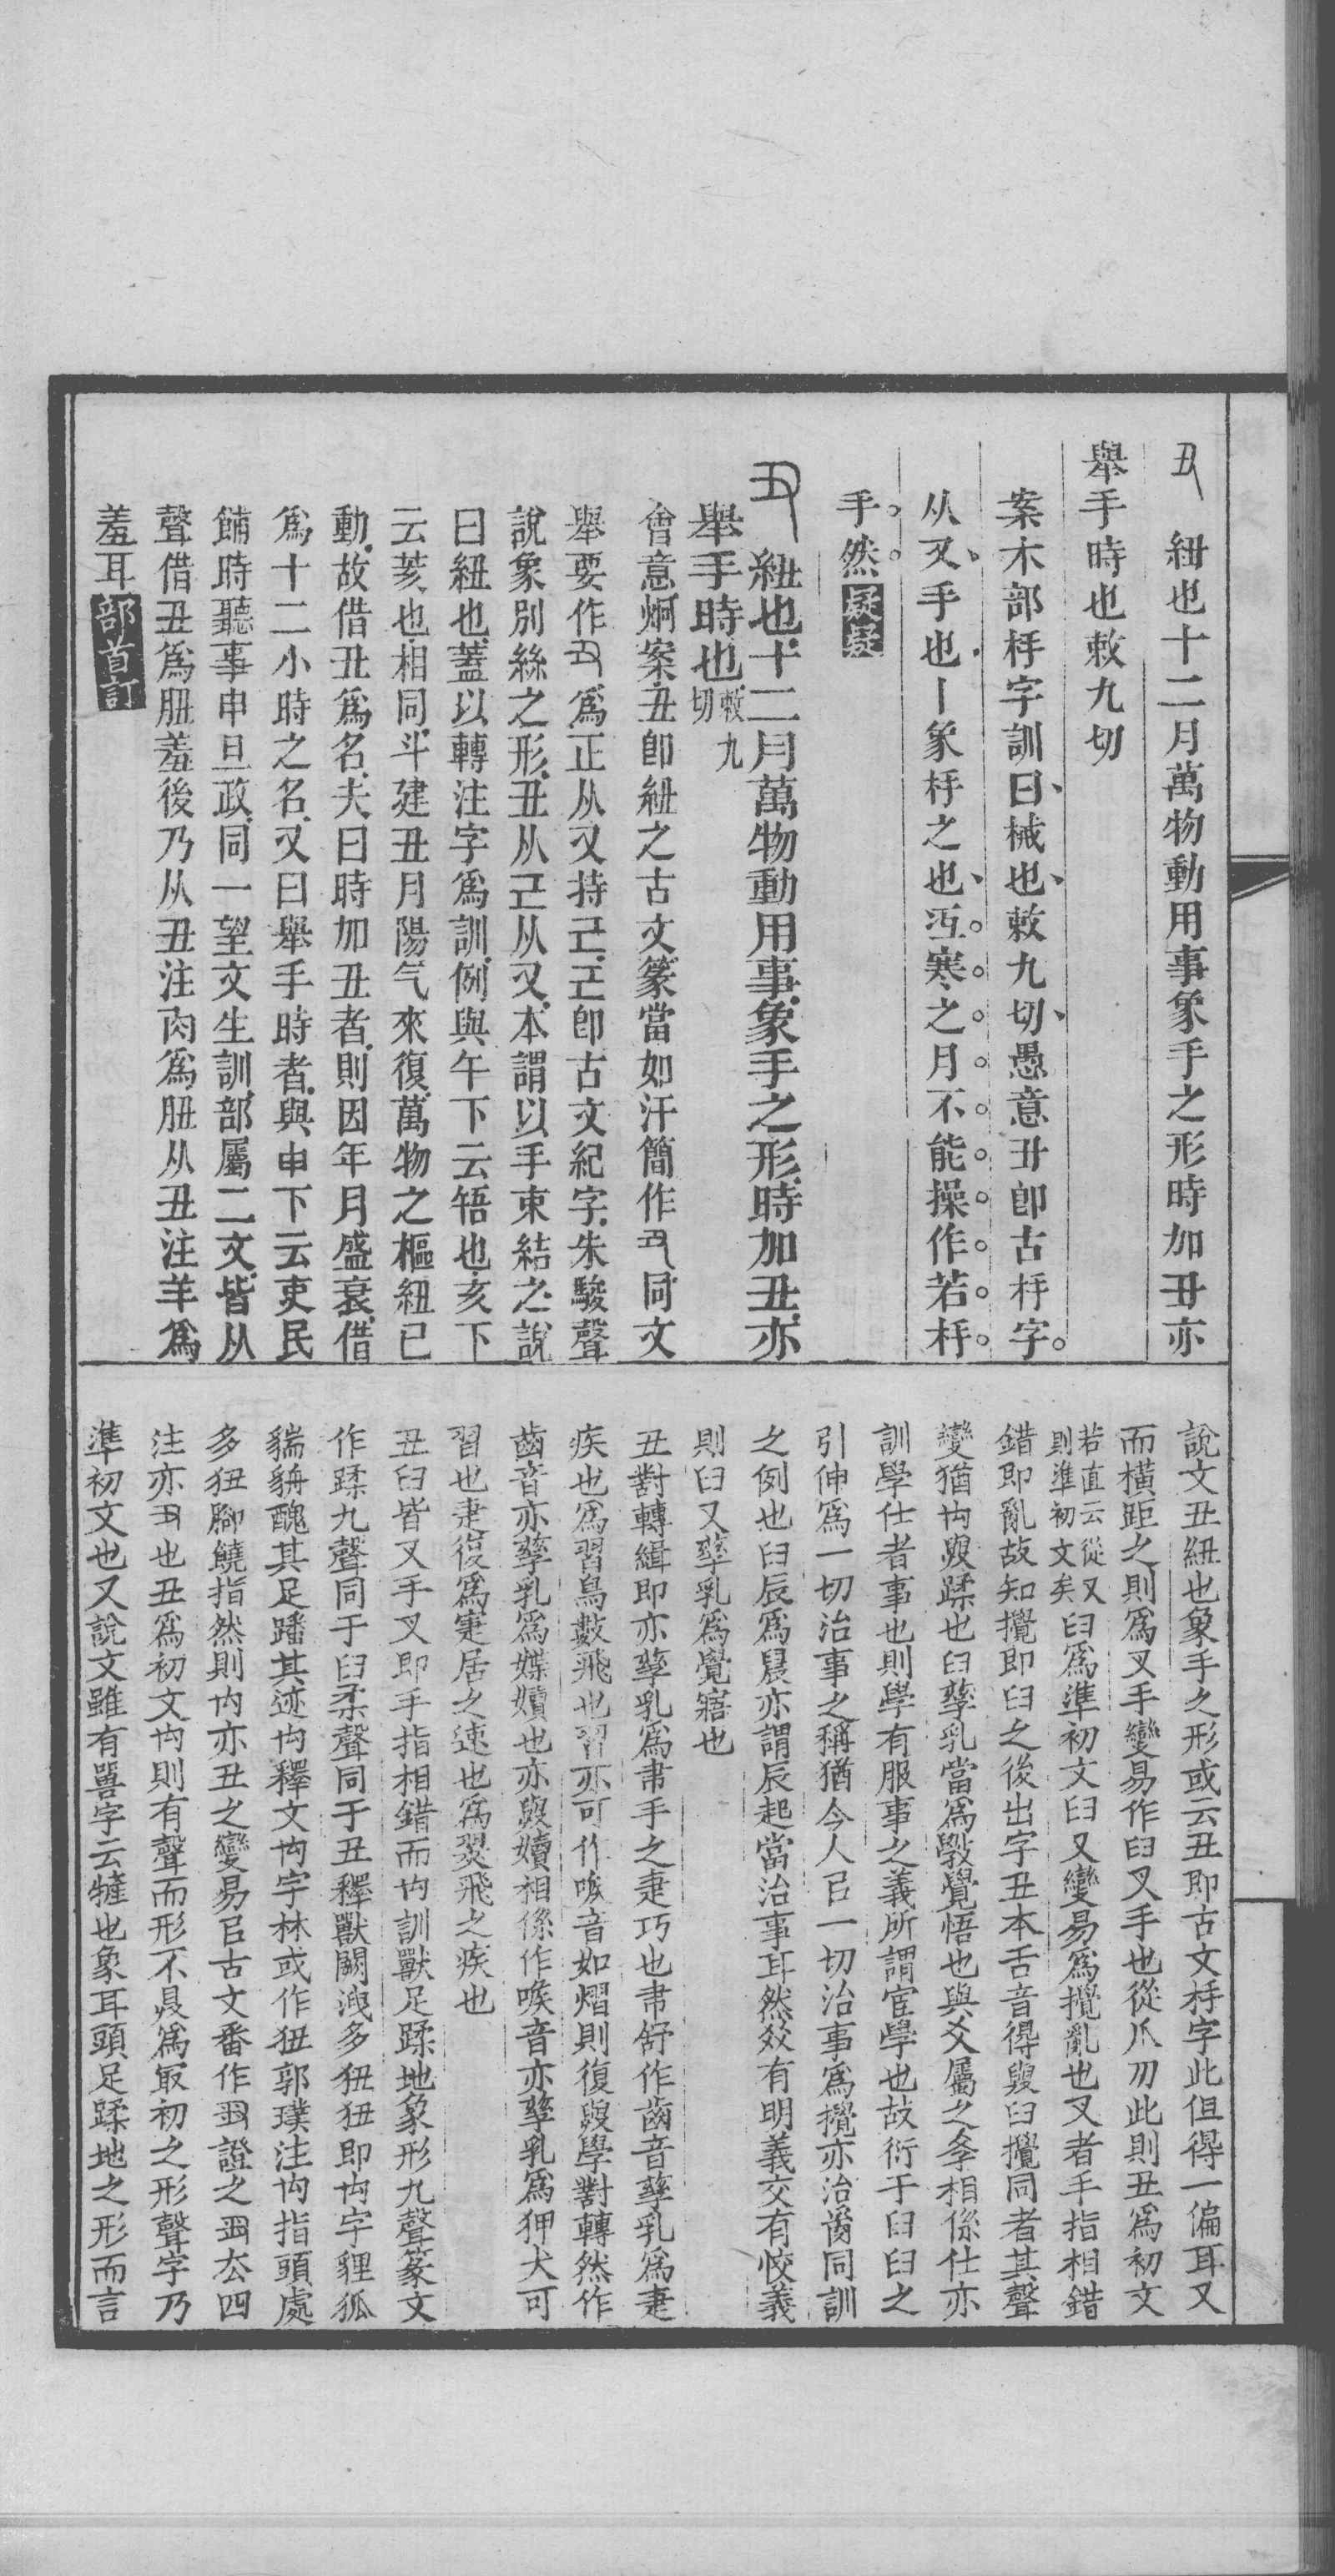 丑 紐也十二月萬物動用事象手之形時加丑亦
舉手時也敕九切
案木部杽字訓曰械也敕九切愚意丑卽古杽字
从又手也丨象杽之也沍寒之月不能操作若杽
手然疑疑
丑 紐也十二月萬物動用事象手之形時加丑亦
舉手時也敕九切
會意炯案丑卽紐之古文篆當如汗簡作丑同文
舉要作丑爲正从又持己己卽古文紀字朱駿聲
說象別絲之形丑从己从又本謂以手束結之說
曰紐也蓋以轉注字爲訓例與午下云啎也亥下
云荄也相同斗建丑月陽气來復萬物之樞紐已
動故借丑爲名夫曰時加丑者則因年月盛衰借
爲十二小時之名又曰舉手時者與申下云吏民
餔時聽事申旦政同一望文生訓部屬二文皆从
聲借丑爲肚羞後乃从丑注肉爲肚从丑注羊爲
羞耳部首訂
說文丑紐也象手之形或云丑即古文杽字此但得一偏耳又
而橫距之則爲叉手變易作臼叉手也從爪爪此則丑爲初文
若直云從又則準初文矣臼爲準初文臼又變易爲攪亂也叉者手指相錯
錯即亂故知攪即臼之後出字丑本舌音得與臼攪同者其聲
變猶禸與蹂也臼孳乳當爲斆覺悟也與爻屬之季相係仕亦
訓學仕者事也則學有服事之義所謂宦學也故衍于臼臼之
引伸爲一切治事之稱猶今人㠯一切治事爲攪亦治𤔔同訓
之例也臼辰爲晨亦謂辰起當治事耳然效有明義交有恔義
則臼又孳乳爲覺寤也
丑對轉緝即亦孳乳爲𦘒手之疌巧也𦘒舒作齒音孳乳爲疌
疾也爲習鳥數飛也習亦可作喉音如熠則復與學對轉然作
齒音亦孳乳爲媟嬻也亦與嬻相係作喉音亦孳乳爲狎犬可
習也疌復爲寁居之速也爲翜飛之疾也
丑臼皆叉手叉即手指相錯而禸訓獸足蹂地象形九聲篆文
作蹂九聲同于臼柔聲同于丑釋獸闕洩多狃狃即禸字貍狐
貒貈醜其足蹯其迹禸釋文禸字林或作狃郭璞注禸指頭處
多狃腳饒指然則禸亦丑之變易㠯古文番作𢆉證之𢆉厺四
注亦丑也丑爲初文禸則有聲而形不具爲最初之形聲字乃
準初文也又說文雖有嘼字云㹌也象耳頭足蹂地之形而言